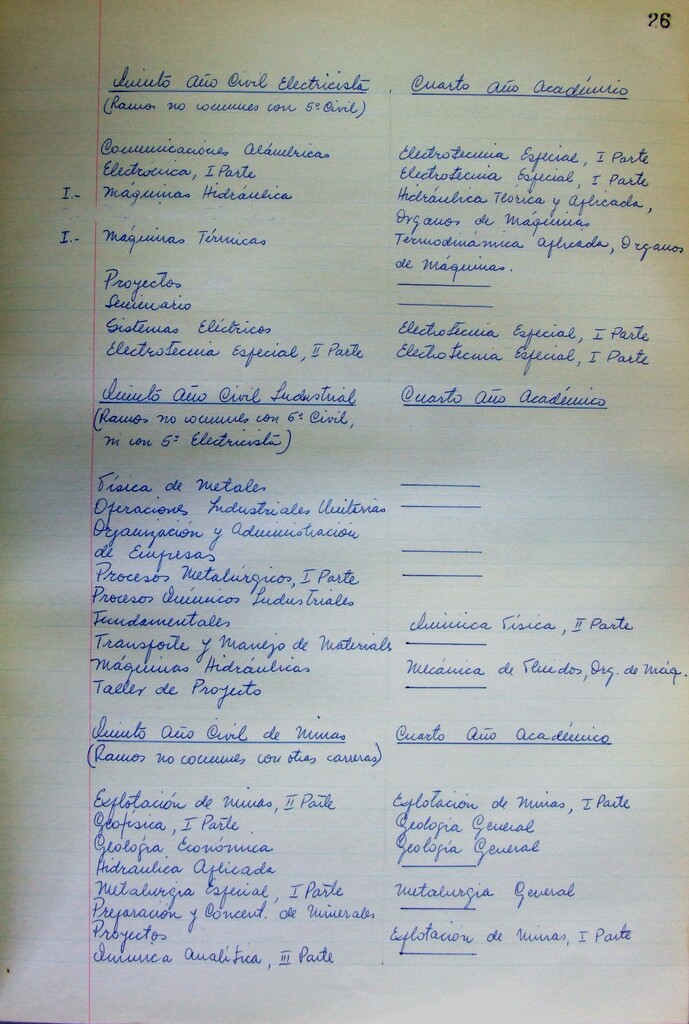 26
Quinto Año Civil Electricista Cuarto Año Académico
(Ramos no comunes con 5º Civil)
Comunicaciones Alámbricas Electrotecnia Especial, I Parte
Electrónica, I Parte Electrotecnia Especial, I Parte
I.- Máquinas Hidráulica Hidráulica Teórica y Aplicada,
Organos de Máquinas
I.- Máquinas Térmicas Termodinámica Aplicada, Organos
de Máquinas.
Proyectos
Seminario
Sistemas Eléctricos Electrotecnia Especial, I Parte
Electrotecnia Especial, II Parte Electrotecnia Especial, I Parte
Quinto Año Civil Industrial Cuarto Año Académico
(Ramos no comunes con 5º Civil,
ni con 5º Electricista)
Física de Metales
Operaciones Industriales Unitarias
Organización y Administración
de Empresas
Procesos Metalúrgicos, I Parte
Procesos Químicos Industriales
Fundamentales Química Física, II Parte
Transporte y Manejo de Materiales
Máquinas Hidráulicas Mecánica de Fluidos, Org. de Máq.
Taller de Proyecto
Quinto Año Civil de Minas Cuarto Año Académico
(Ramos no comunes con otras carreras)
Explotación de Minas, II Parte Explotación de Minas, I Parte
Geofísica, I Parte Geología General
Geología Económica Geología General
Hidráulica Aplicada
Metalurgia Especial, I Parte Metalurgia General
Preparación y Concent. de Minerales
Proyectos Explotación de Minas, I Parte
Química Analítica, III Parte